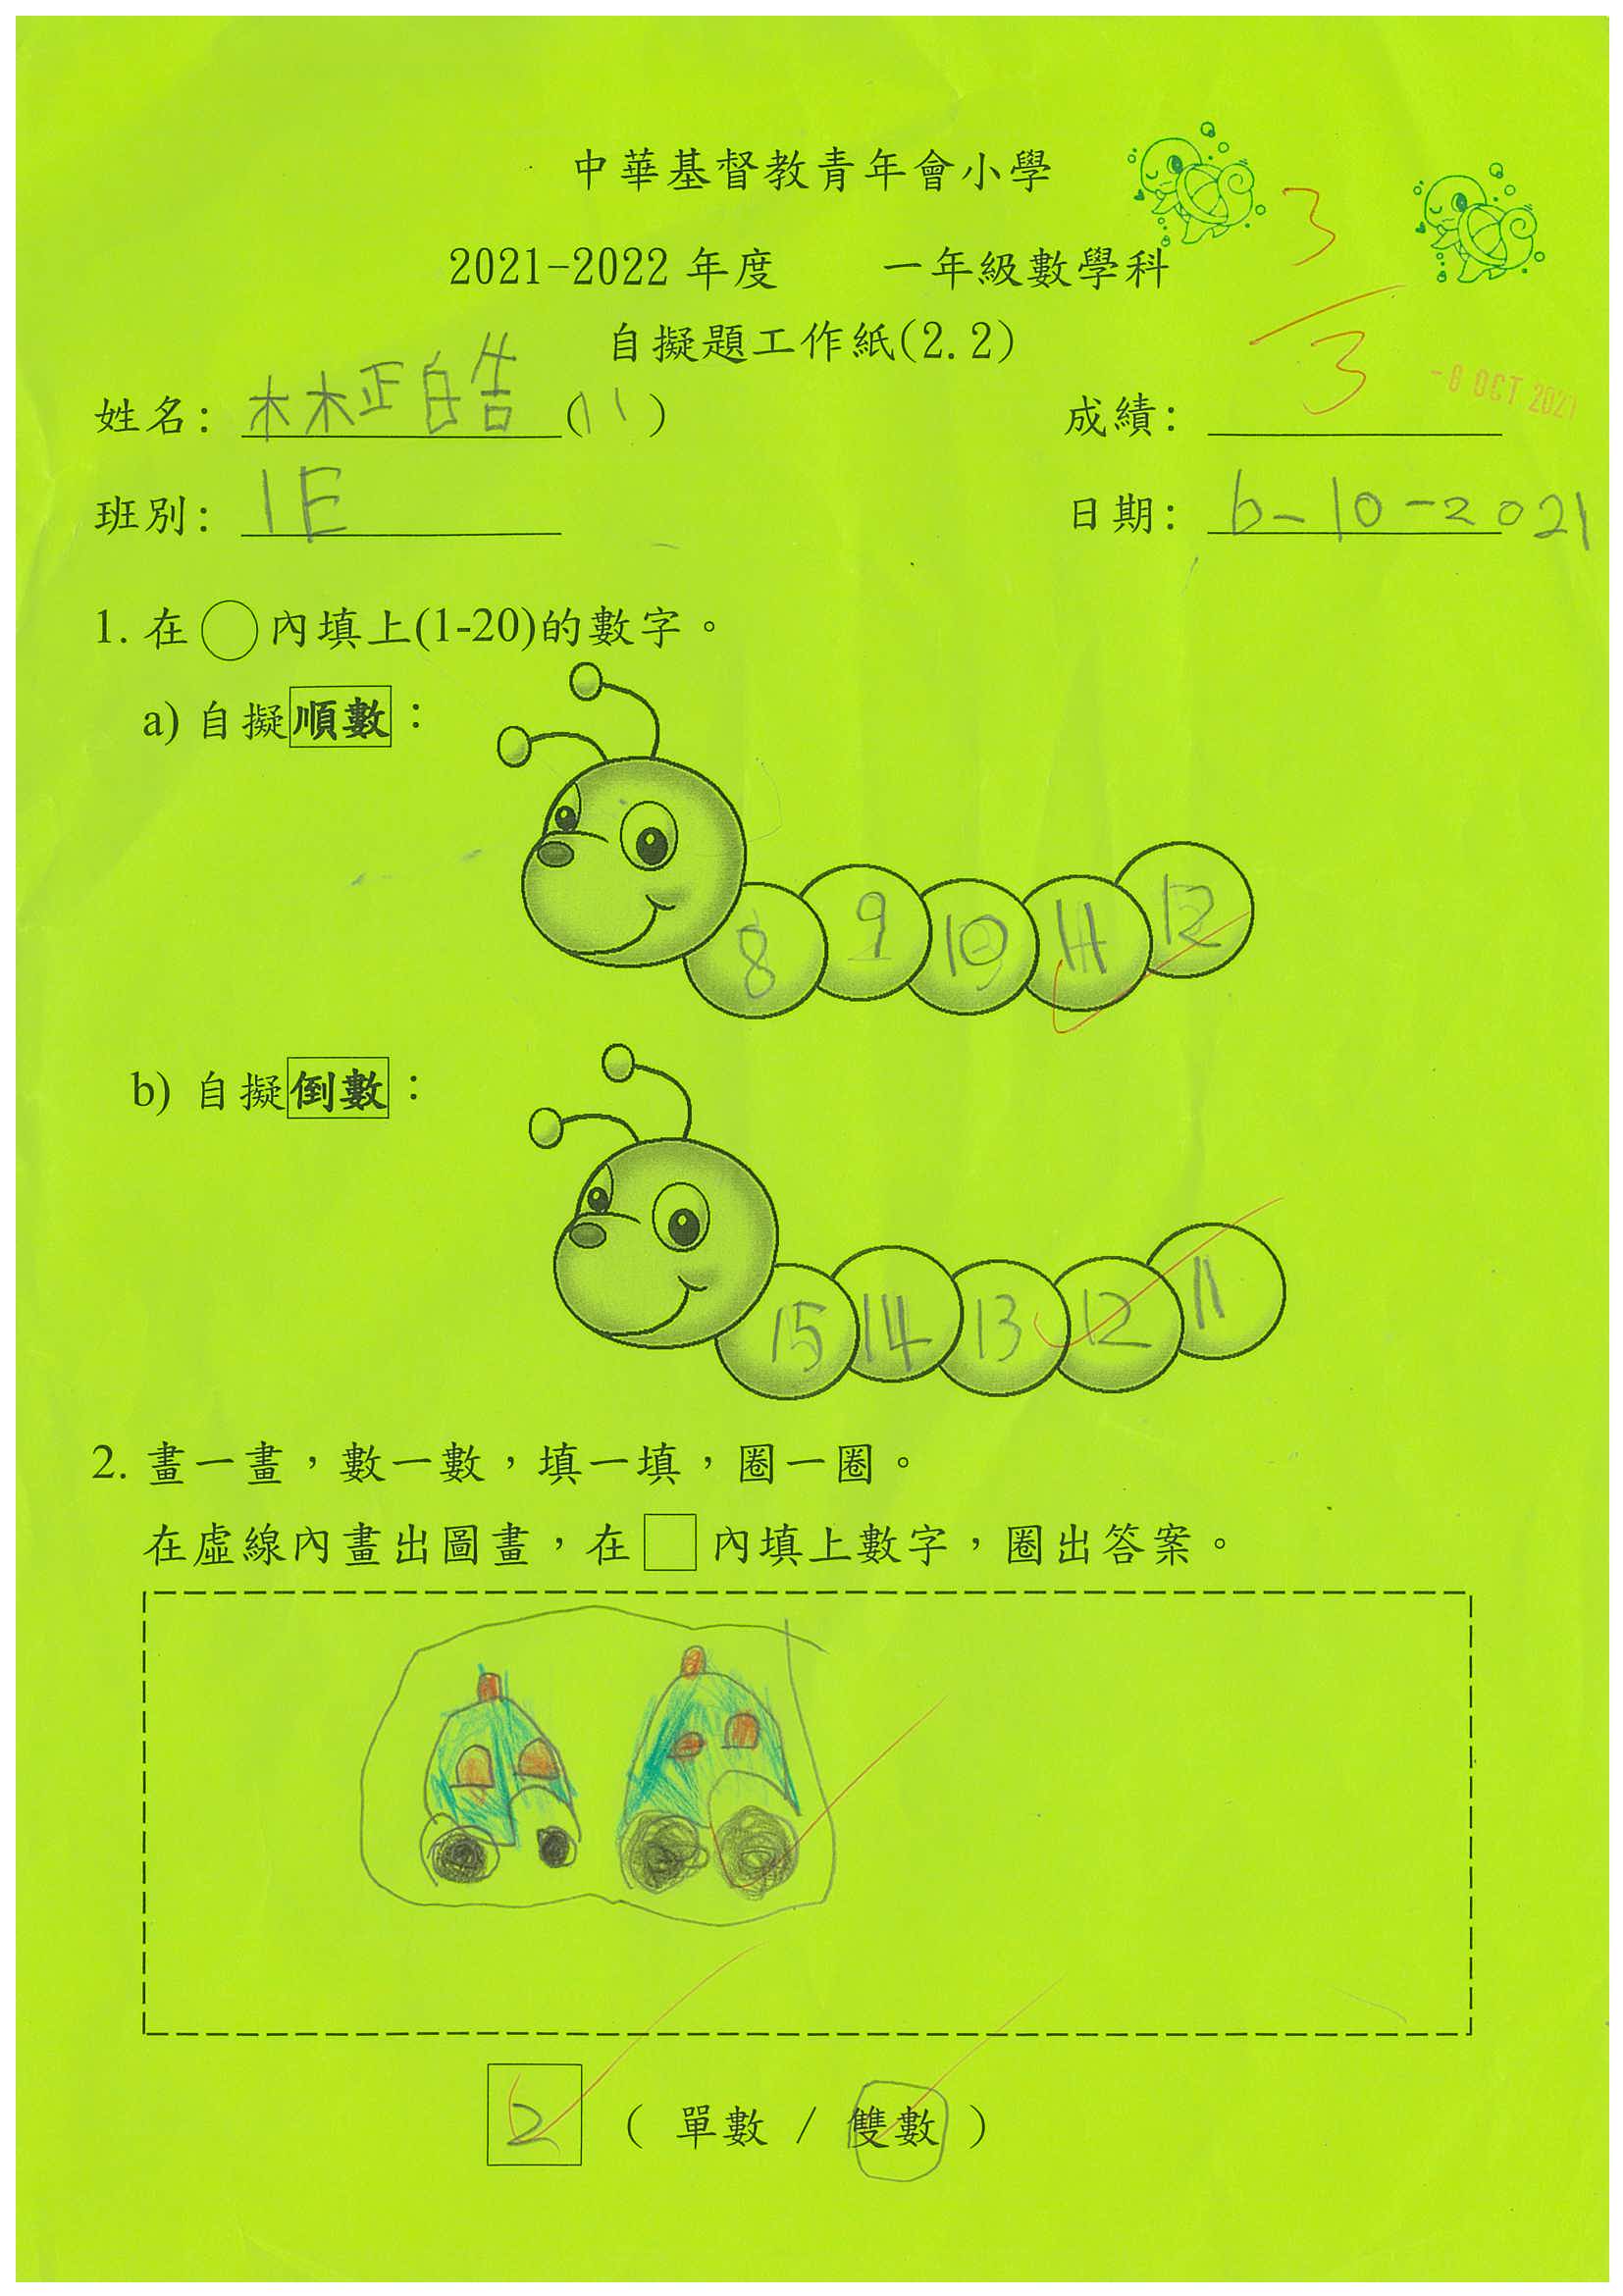 中華基督教青年會小學
2021-2022 年度 一年級數學科
3
自擬題工作紙(2.2)
3
-6 OCT 2021
姓名: 林正皓 (11) 成績:
班別: 1E 日期: 6-10-2021
1. 在○內填上(1-20)的數字。
a) 自擬順數：
8 9 10 11 12
b) 自擬倒數：
15 14 13 12 11
2. 畫一畫，數一數，填一填，圈一圈。
在虛線內畫出圖畫，在□內填上數字，圈出答案。
2 ( 單數 / 雙數 )